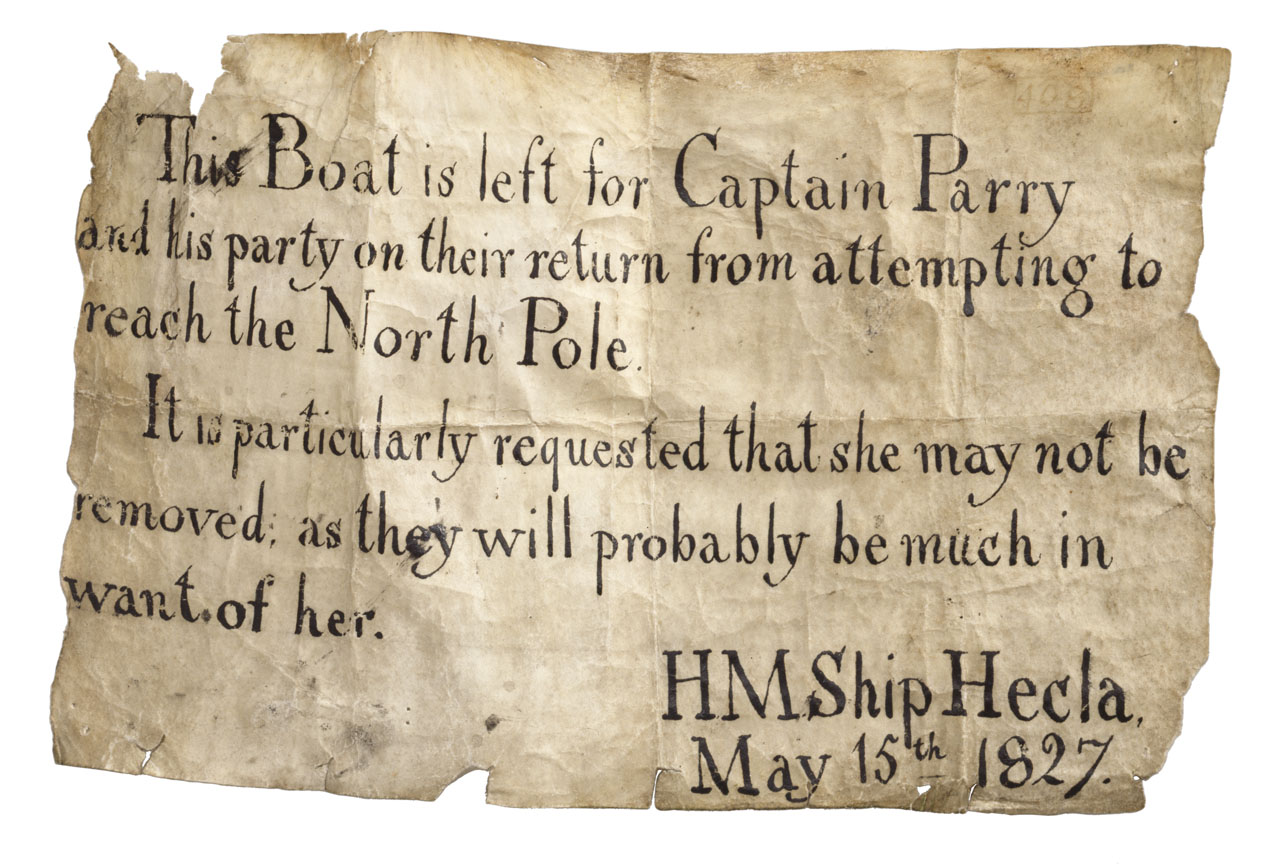 This Boat is left for Captain Parry
and his party on their return from attempting to
reach the North Pole.
It is particularly requested that she may not be
removed; as they will probably be much in
want of her.
HMShip Hecla,
May 15th 1827.